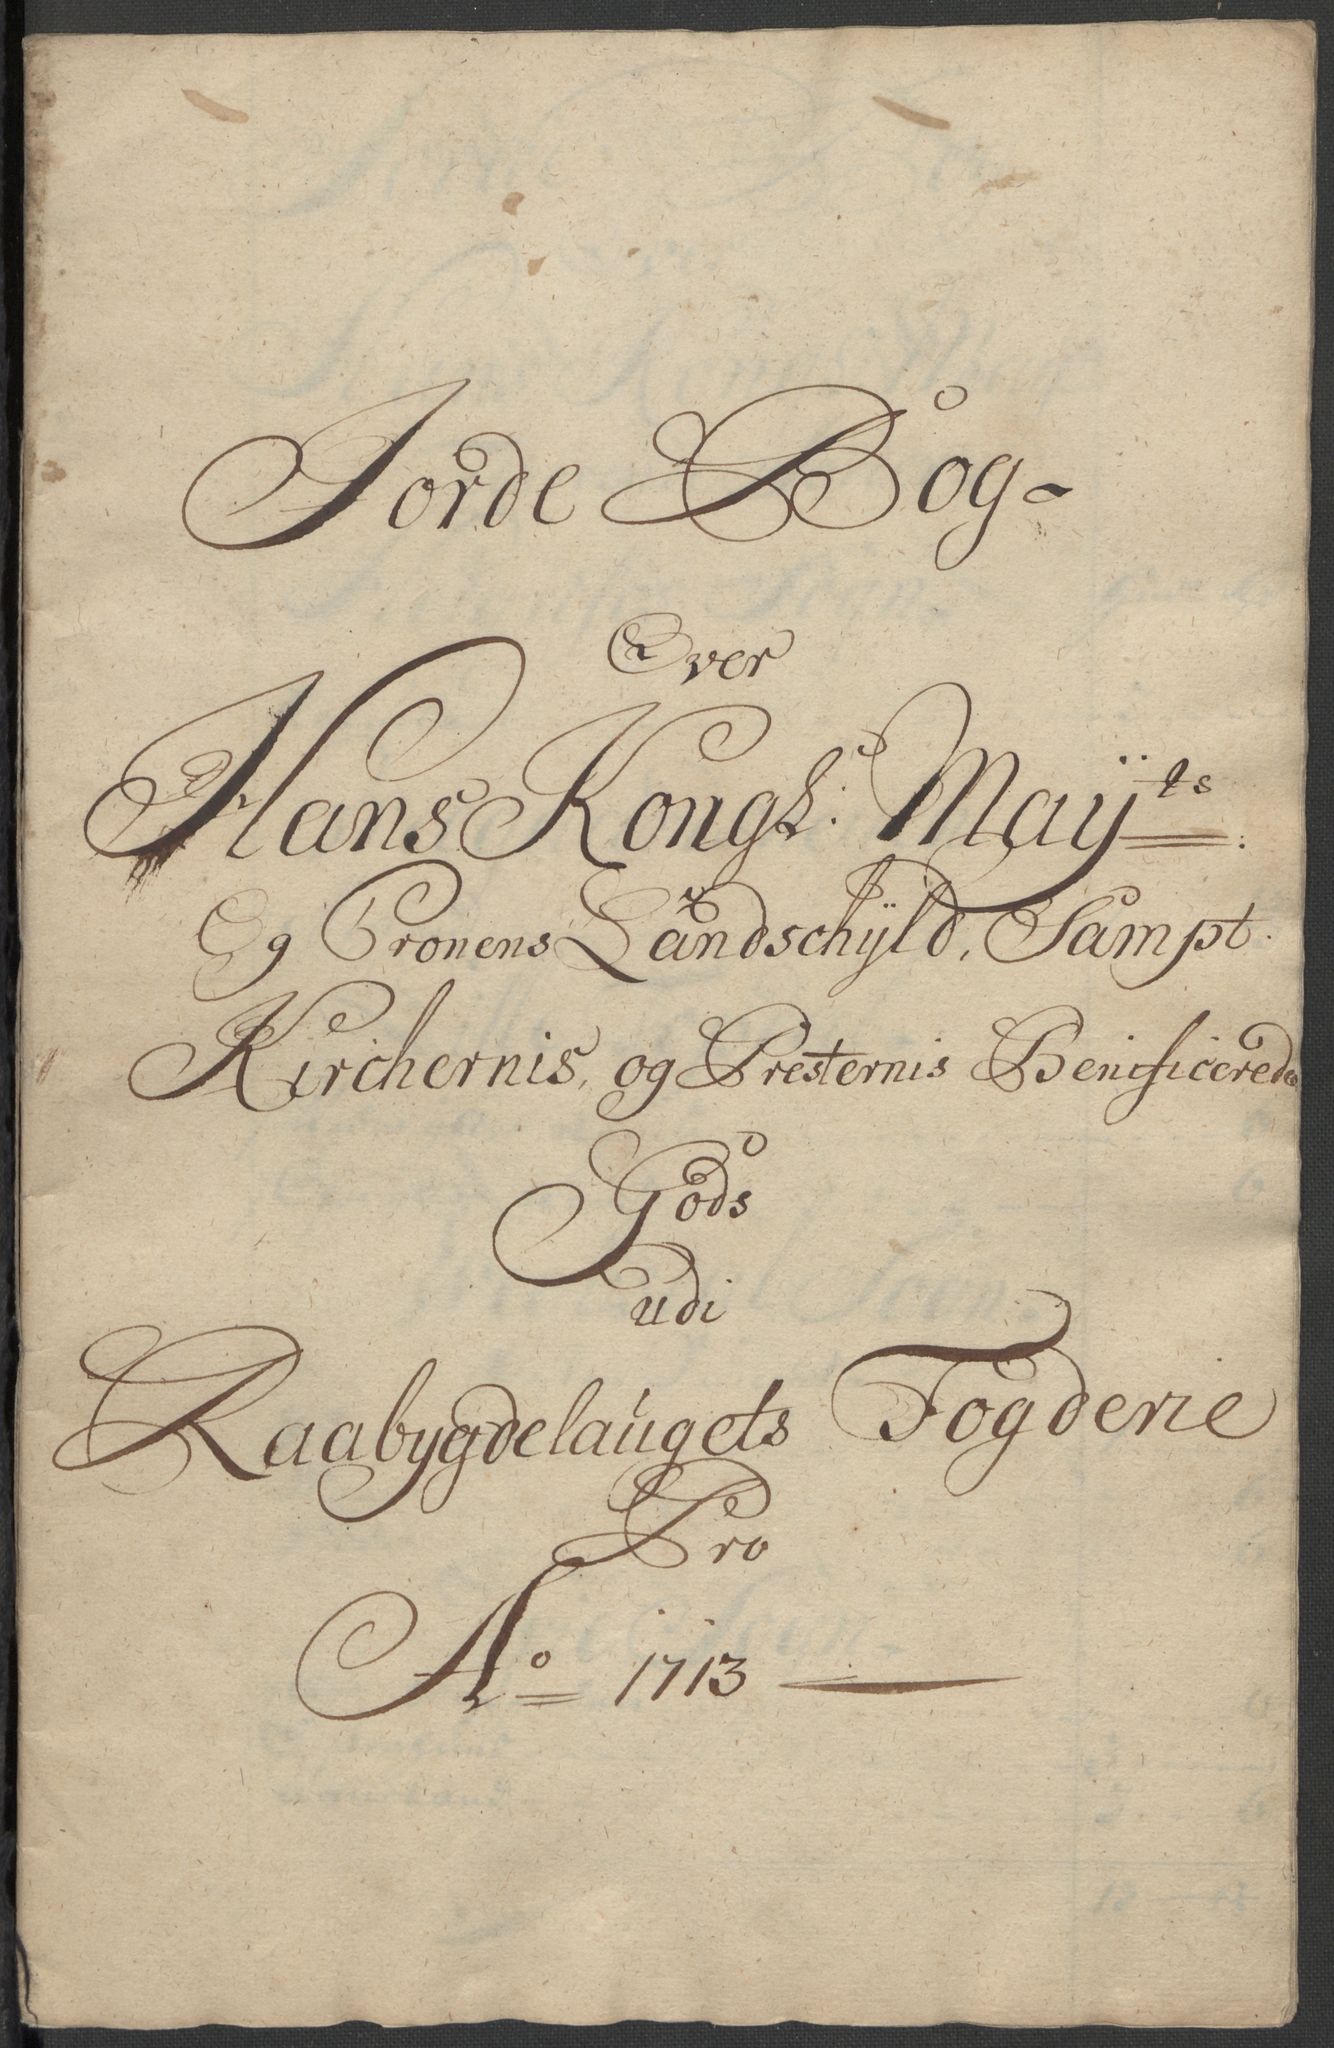 Jorde Bog-
Over
Hans Kongl: Mayts:
Og Cronens Landschyld, Sampt
Kirchernis, og Presternis Benificerede
Gods
udi
Raabygdelaugets Fogderie
Pro
Ao 1713